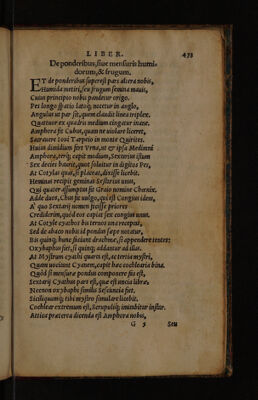 LIBER. 473
De ponderibus, siue mensuris humi
dorum, & frugum.
ET de ponderibus superest pars altera nobis,
Humida metiri, seu frugum semina mauis,
Cuius principio nobis pandetur origo.
Pes longo spatio latoque notetur in anglo,
Angulus ut par sit, quem claudit linea triplex.
Quatuor ex quadris medium cingatur inane.
Amphora fit Cubus, quam ne uiolare liceret,
Sacrauere Ioui Tarpeio in monte Quirites.
Huius dimidium fert Vrna, ut et ipsa Medimni
Amphora, terque capit medium, Sextarius istum
Sex decies haurit, quot soluitur in digitos Pes,
At Cotylas, quas, si placeat, dixisse licebit.
Heminas recipit geminas Sextarius unus,
Qui quater assumptus fit Graio nomine Chœnix.
Adde duos, Chus fit uulgo, qui est Congius idem,
A quo Sextarii nomen fecisse priores
Crediderim, quòd eos capiat sex congius unus.
At Cotyle cyathos bis ternos una receptat,
Sed de abaco nobis id pondus sæpe notatur,
Bis quinque hunc faciunt drachmæ, si appendere tentes:
Oxybaphus fiet, si quinque addantur ad illas.
At Mystrum cyathi quarta est, ac tertia mystri,
Quam uocitant Cyamum, capit hæc cochlearia bina.
Quòd si mensuræ pondus componere fas est,
Sextarii Cyathus pars est, quæ est uncia libræ.
Necnon oxybaphi similis Sescuncia fiet.
Siciliquumque tibi mystro simulare licebit.
Cochlear extremum est, Scrupulique imitabitur instar.
Attica præterea dicenda est Amphora nobis,
G 5 Seu